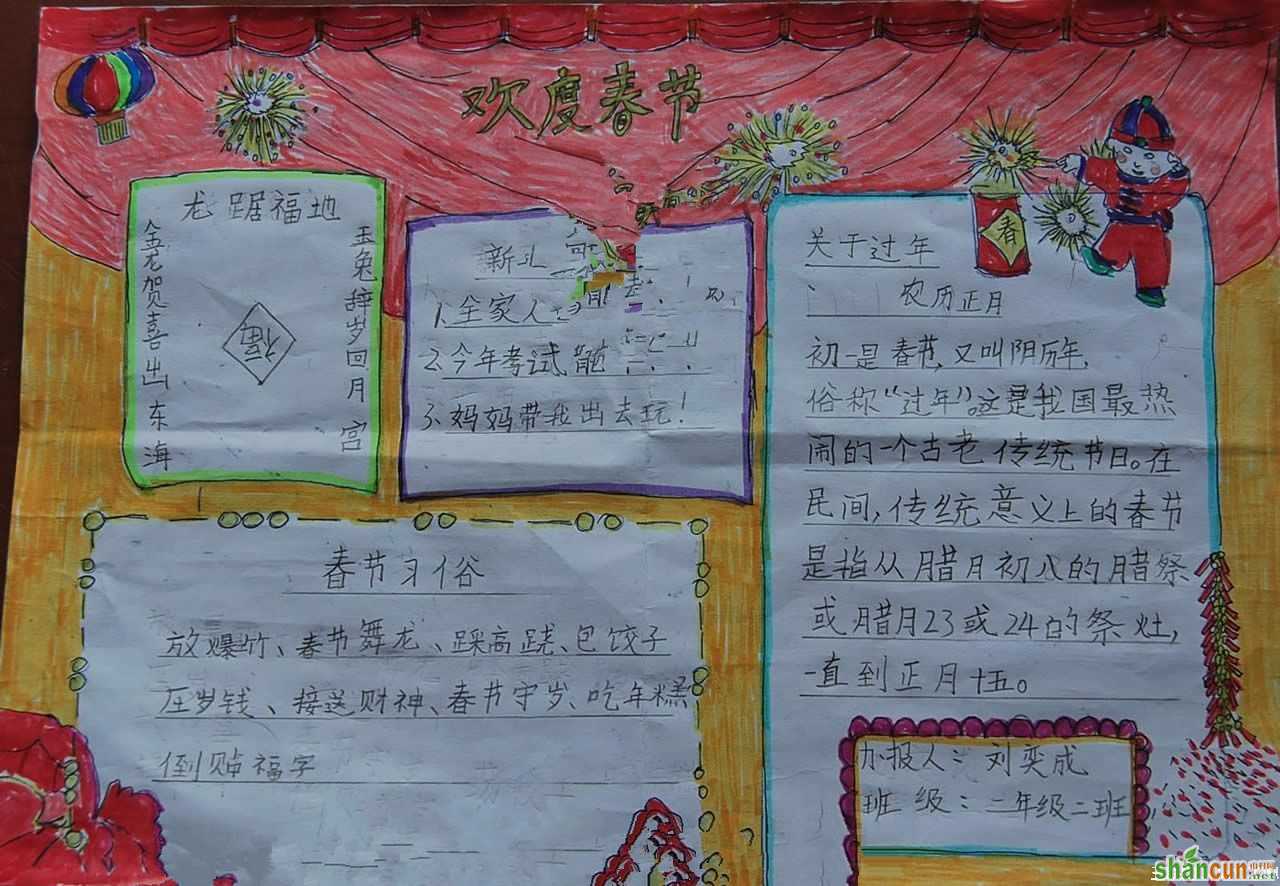 欢度春节
龙踞福地
玉兔辞岁回月宫
金龙贺喜出东海
福
新
1.全家人
2.今年考试能
3.妈妈带我出去玩!
关于过年
农历正月
初一是春节,又叫阴历年,
俗称“过年”。这是我国最热
闹的一个古老传统节日。在
民间,传统意义上的春节
是指从腊月初八的腊祭
或腊月23或24的祭灶,
一直到正月十五。
春
春节习俗
放爆竹、春节舞龙、踩高跷、包饺子
压岁钱、接送财神、春节守岁、吃年糕
倒贴福字
办报人:刘奕成
班级:二年级二班
shancun
.net